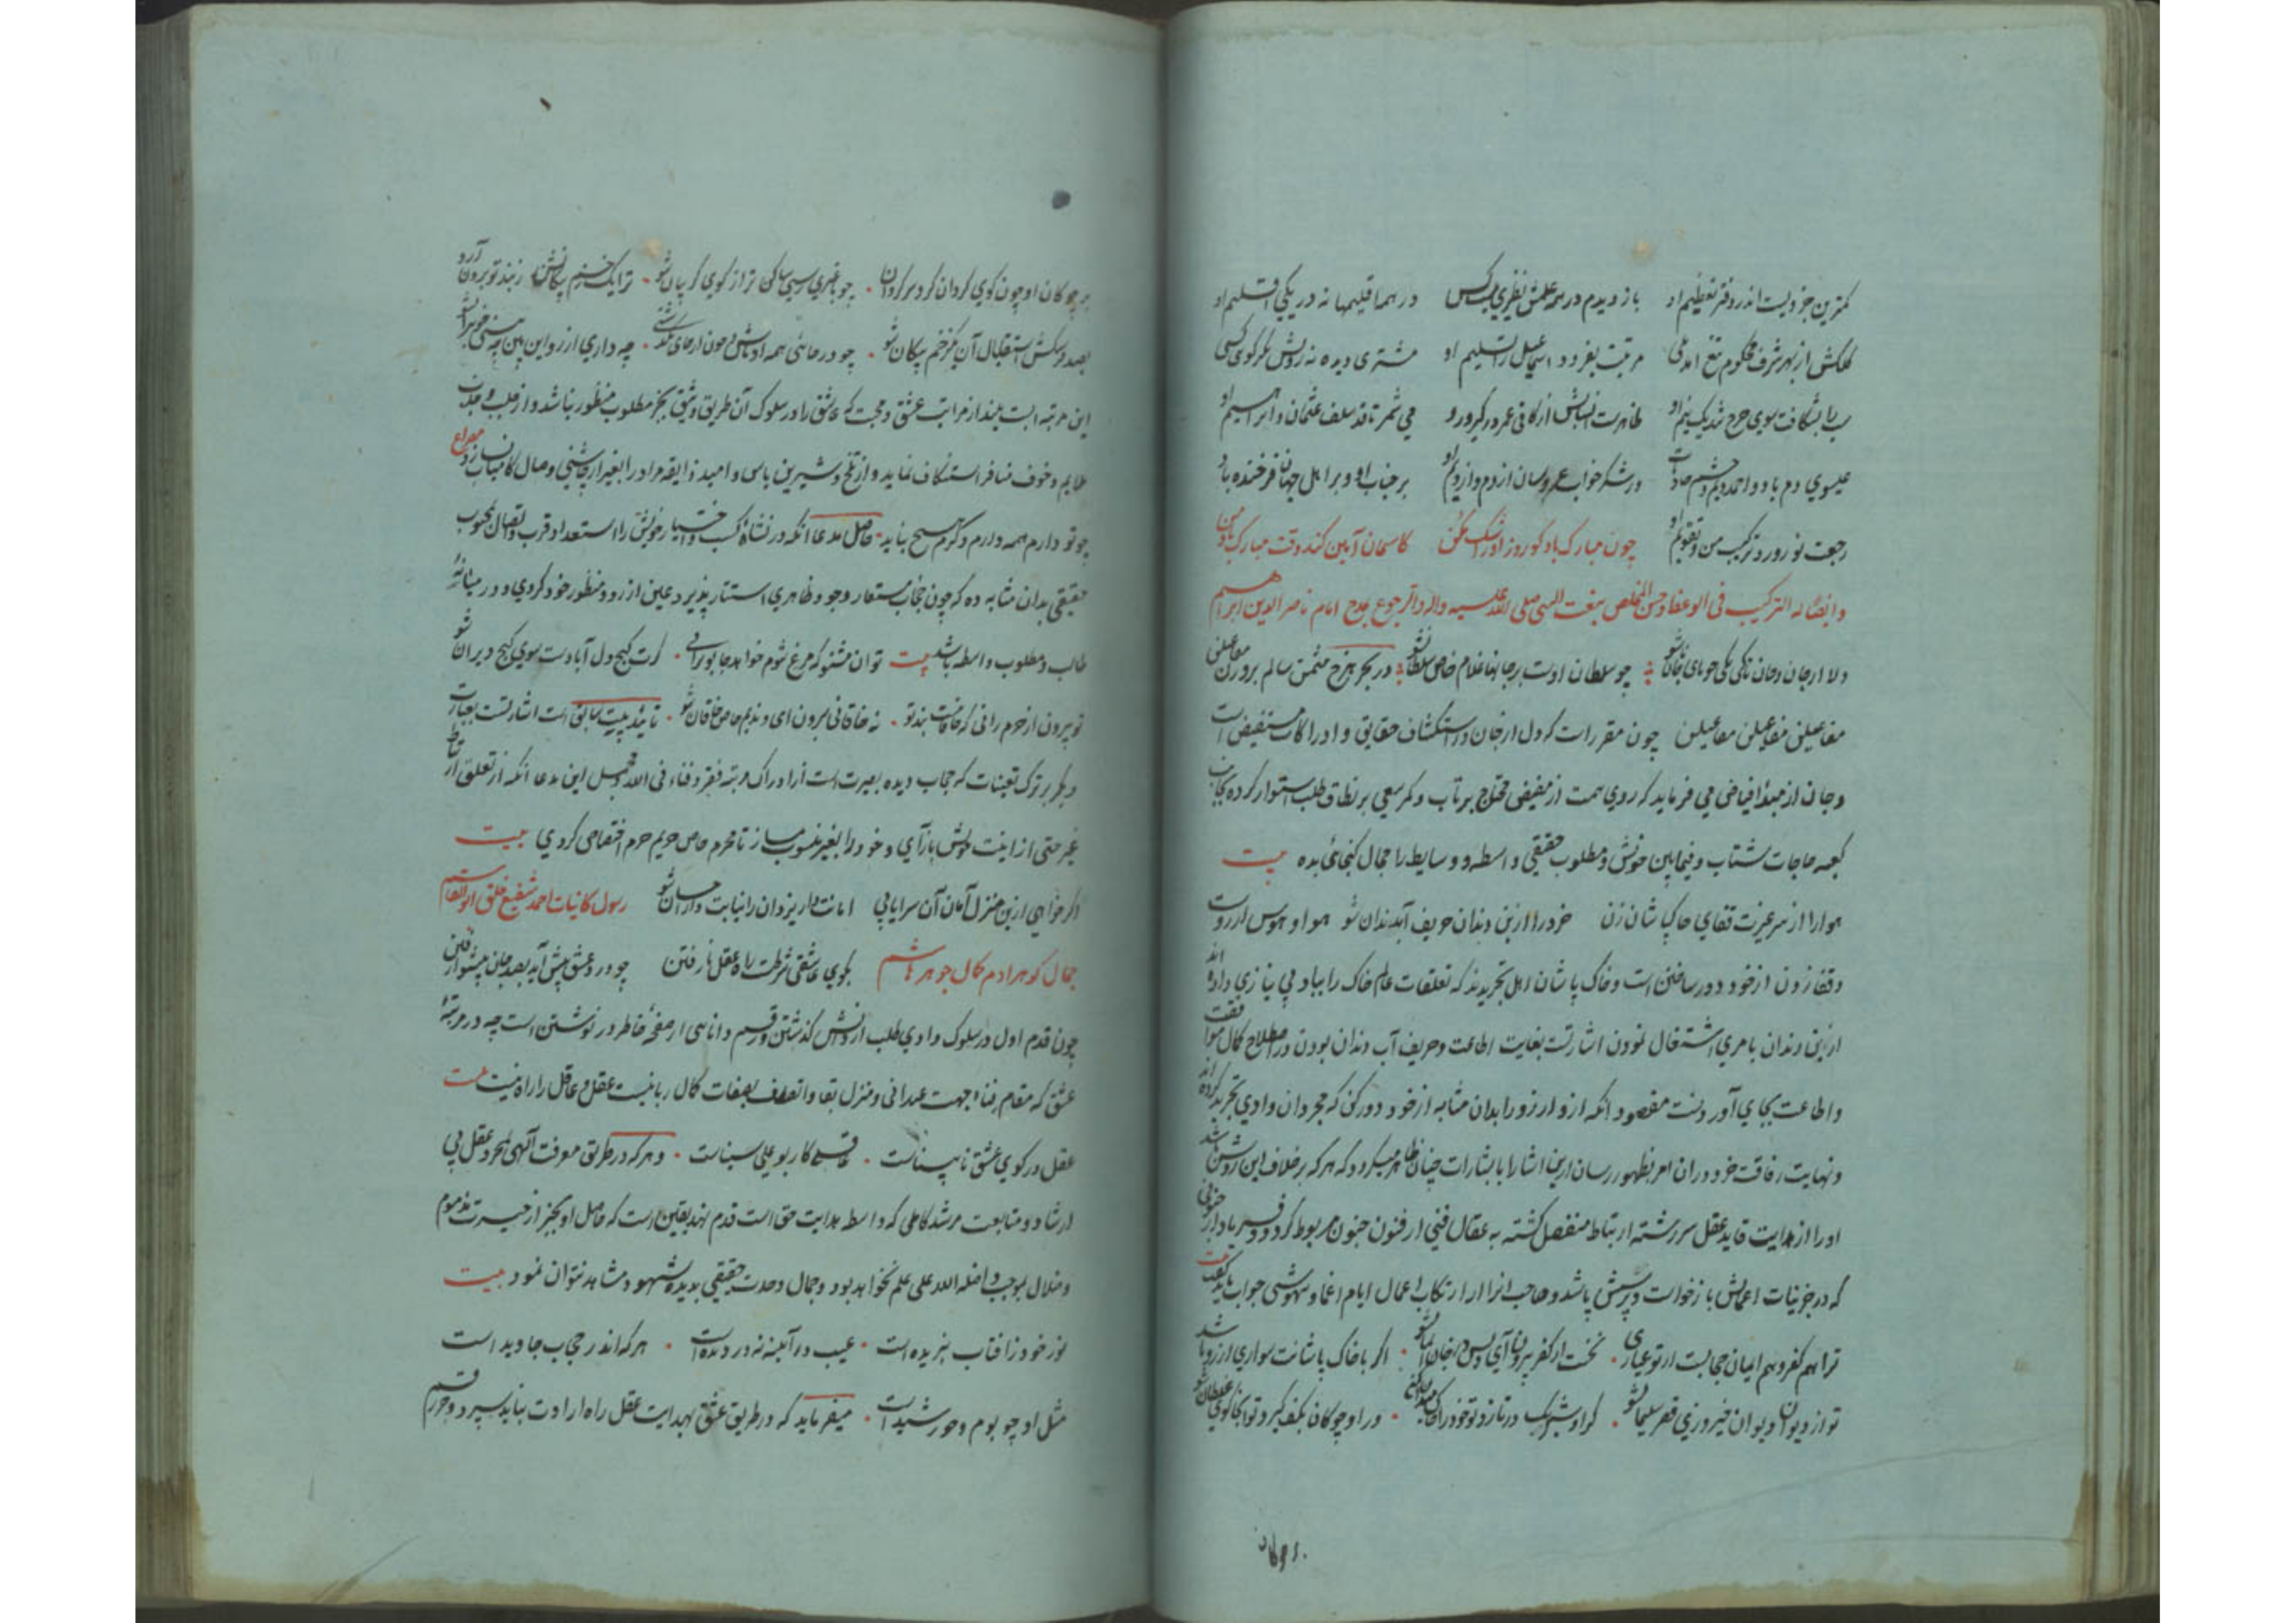 کمترین جزویست اندر دفتر تعظیم او باز دیدم در همه علمش نظیری نیست کس در همه اقلیمها نه در یکی اقلیم او
کلکش از بهر شرف محکوم تیغ آمد مرتبت بفزود اسماعیل را تسلیم او مشتری دیده نه رویش
بشکافت سوی چرخ شد یک نیم او ظاهرست عمر می شمر تا نه سلف عثمان و ابراهیم او
عیسوی دم باد و احمد در شکر خواب عروسان از دم و از دیم او بر جناب او و بر اهل جهان فرخنده باد
رجعت نوروز و ترکیب من و تقویم او چون مبارک باد گو روز کاسمان آمین کند وقت مبارک باد من
وایضا له الترکیب فی الوعظ و حسن التخلص بنعت النبی صلی الله علیه واله والرجوع بمدح امام ناصر الدین ابراهیم
دلا از جان و جان تا کی یکی جویای جانان شو چو سلطان اوست بر جانها غلام خاص سلطان شو در بحر هزج مثمن سالم بر وزن مفاعیلن
مفاعیلن مفاعیلن مفاعیلن چون مقررات که دل از جان در استکشاف حقایق و ادراکات مستفیض است
و جان از مبدأ فیاض می فرماید که روی همت از مفیض محتاج برتاب و کمر سعی بر نطاق طلب استوار کرده بجانب
کعبه حاجات شتاب و فیمابین خویش و مطلوب حقیقی واسطه و وسایط را مجال گنجائی مده بیت
هوا را از سر عزت قفای خاک پاشان زن خرد را از بن دندان حریف آب دندان شو هوا و هوس آرزوست
و قفا زدن از خود دور ساختن است و خاک پاشان اهل تجریدند که تعلقات عالم خاک را بباد بی نیازی داده اند
از بن دندان بامری اشتغال نمودن اشارتست بغایت اطاعت و حریف آب دندان بودن در اصطلاح کمال موافقت
و اطاعت بجای آوردنست مقصود آنکه آز و آرزو را بدان مثابه از خود دور کن که مجردان وادی تجرید کرده اند
و نهایت رفاقت خرد در آن امر بظهور رسان ازین اشارا بابشارات چنان ظاهر میکردد که هر که بر خلاف این روش باشد
او را از هدایت قاید عقل سررشته ارتباط منفصل گشته به عقال فنی از فنون جنون مربوط کردد
که در جزئیات اعمالش بازخواست و پرسش باشد و صاحب آنرا از ارتکاب اعمال ایام اغما و بیهوشی جواب باید گفت بیت
ترا هم کفر و هم ایمان حجابست ار تو عیاری نخست از کفر بیرون آی و پس در خون ایمان شو اگر با خاک پاشانت سواری آرزو باشد
تو از دیوان دیوان خیز و زی قصر سلیمان شو گر او شبرنگ در تازد تو خود را خاک میدان کن ور او چوکان بکف گیرد تو آنجا گوی غلطان شو
بر چوکان او چون گوی گردان کرد سر گردان چو باغیری رسی ساکن تر از کوی گریبان شو ترا یک خنده زند تو برون آرد
بصد ترکش استقبال آن یک زخم پیکان شو چو درمانی همه او باش و چون از جای چه داری آرزو این بین چه
این مرتبه ایست بلند از مراتب عشق و محبت که عاشق را در سلوک آن طریق وثیق بجز مطلوب منظور نباشد و از جلب و جذب
ملایم و خوف منافر استنکاف نماید و از تلخ و شیرین یاس و امید ذایقه مراد را بغیر از چاشنی وصال کامیاب نسازد مصراع
چو تو دارم همه دارم دگرم هیچ نباید حاصل مدعا آنکه در نشاة کسب و اختیار خویش را استعداد قرب و اتصال محبوب
حقیقی بدان مثابه ده که چون حجاب مستعار وجود ظاهری استتار پذیرد عین آرزو و منظور خود کردی و در میانه
طالب و مطلوب واسطه نباشد بیت توان مشنو که مرغ شوم خواهد جا بویرانی کرت گنج دل آبادست سوی گنج ویران شو
تو بیرون از حرم رانی که خاقانیست بند تو نه خاقانی برون آی و ندیم خاص خاقان شو تائید بیت سابق است اشارتست بعبارت
دیگر بر ترک تعینات که حجاب دیده بصیرت است از ادراک مرتبه فقر و فناء فی الله و محصل این مدعا آنکه از تعلق ارتباط
غیر حتی از انیت خویش بازآی و خود را بغیر منسوب مساز تا محرم خاص حریم حرم اختصاص کردی بیت
اگر خواهی ازین منزل امان آن سرا یابی امانت دار یزدان را نیابت دار حسان شو رسول کاینات احمد شفیع خلق ابوالقاسم
جمال گوهر آدم کمال جوهر هاشم بکوی عاشقی شرطست راه عقل نا رفتن چو درد عشق پیش آید بصد جان پیشواز رفتن
چون قدم اول در سلوک وادی طلب از دانش گذشتن و رقم دانائی از صفحه خاطر در نوشتن است چه در مرتبه
عشق که مقام فناء جهت عبدانی و منزل بقا و اتصاف بصفات کمال ربانیست عقل و عاقل را راه نیست بیت
عقل در کوی عشق نابیناست عاقلی کار بوعلی سیناست و هر که در طریق معرفت الهی بمجرد عقل بی
ارشاد و متابعت مرشد کاملی که واسطه هدایت حق است قدم نهد یقین است که حاصل او بجز از حیرت مذموم
و ضلال بموجب واضله الله علی علم نخواهد بود و جمال وحدت حقیقی بدیده شهود مشاهد نتوان نمود بیت
نور خود ز آفتاب نبریده است عیب در آینه نه در دیده است هر که اندر حجاب جاوید است
مثل او چو بوم و خورشید است میفرماید که در طریق عشق بهدایت عقل راه ارادت نباید سپرد و